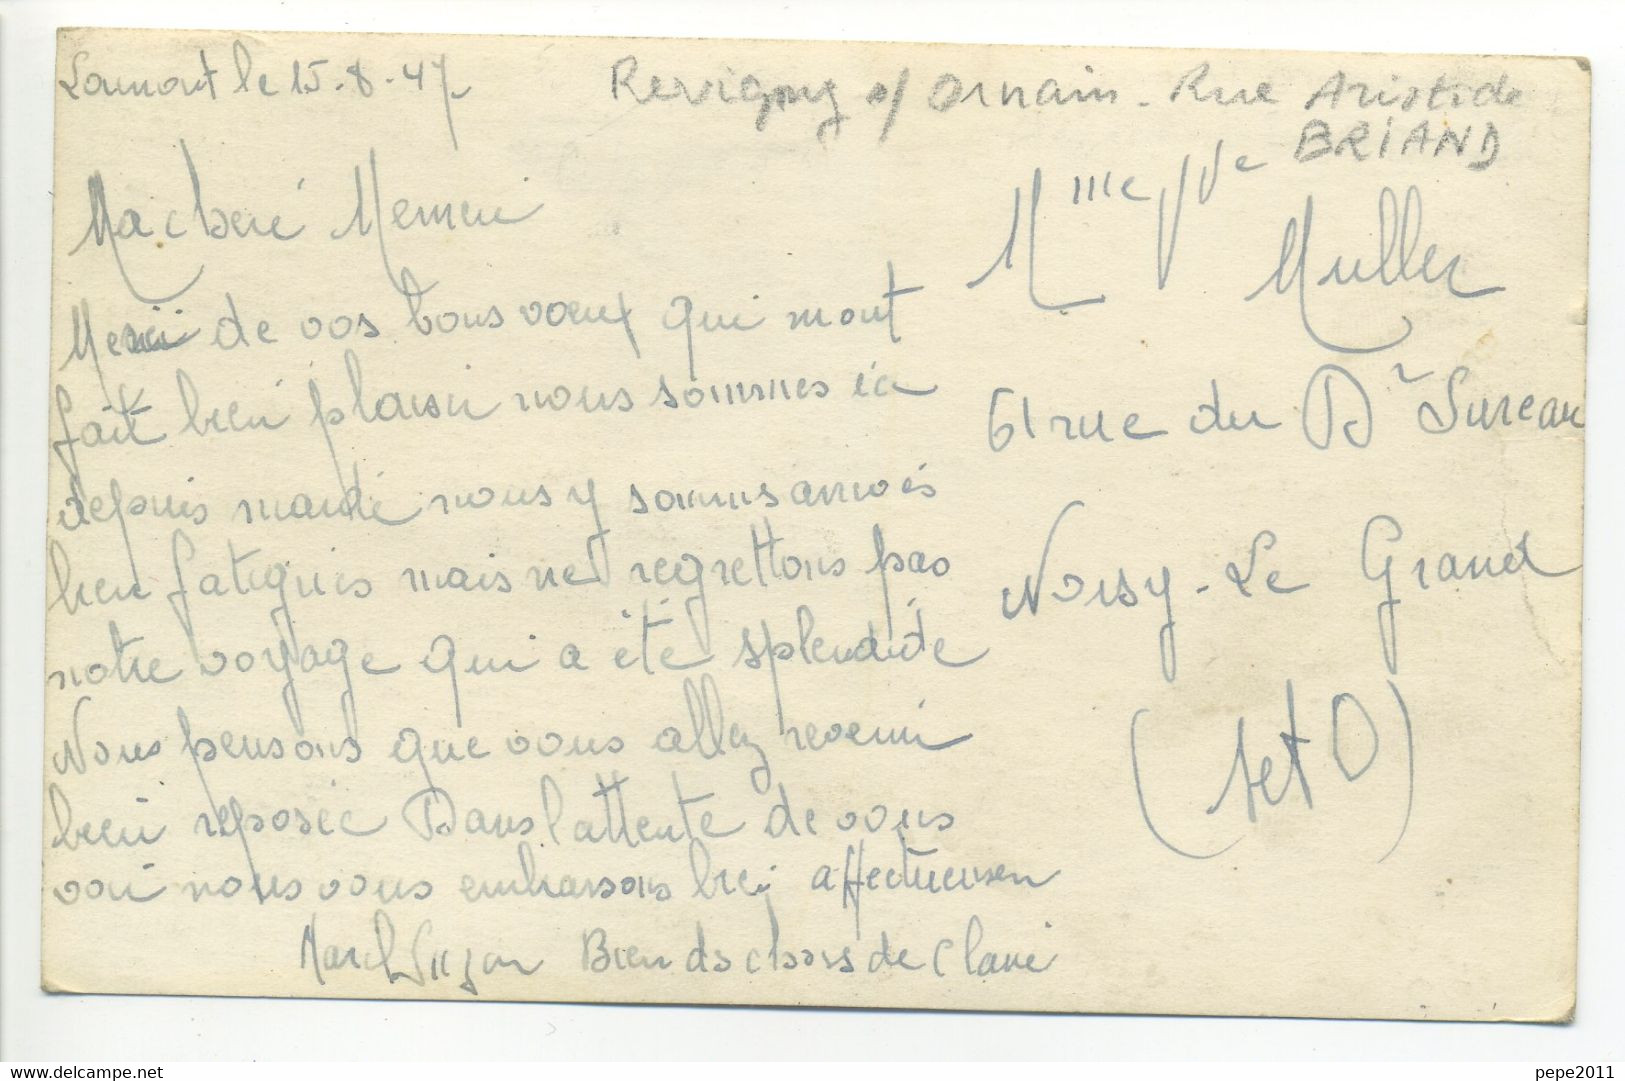 Lamont le 15-8-47
Revigny s/ Ornain - Rue Aristide
BRIAND
Ma cheré Memeri
Merci de vos bons voeux qui mont
fait bien plaisir nous sommes ici
depuis mardi nous y sommes arrivés
bien fatigués mais ne regrettons pas
notre voyage qui a été splendide
Nous pensons que vous allez revenir
bien reposée Dans l attente de vous
voir nous vous embrassons bien affectueusen
Marcel Suzon Bien ds chors de Claire
Mme Vve
Muller
61 rue du Dr Sureau
Noisy-Le Grand
(S et O)
www.delcampe.net
pepe2011